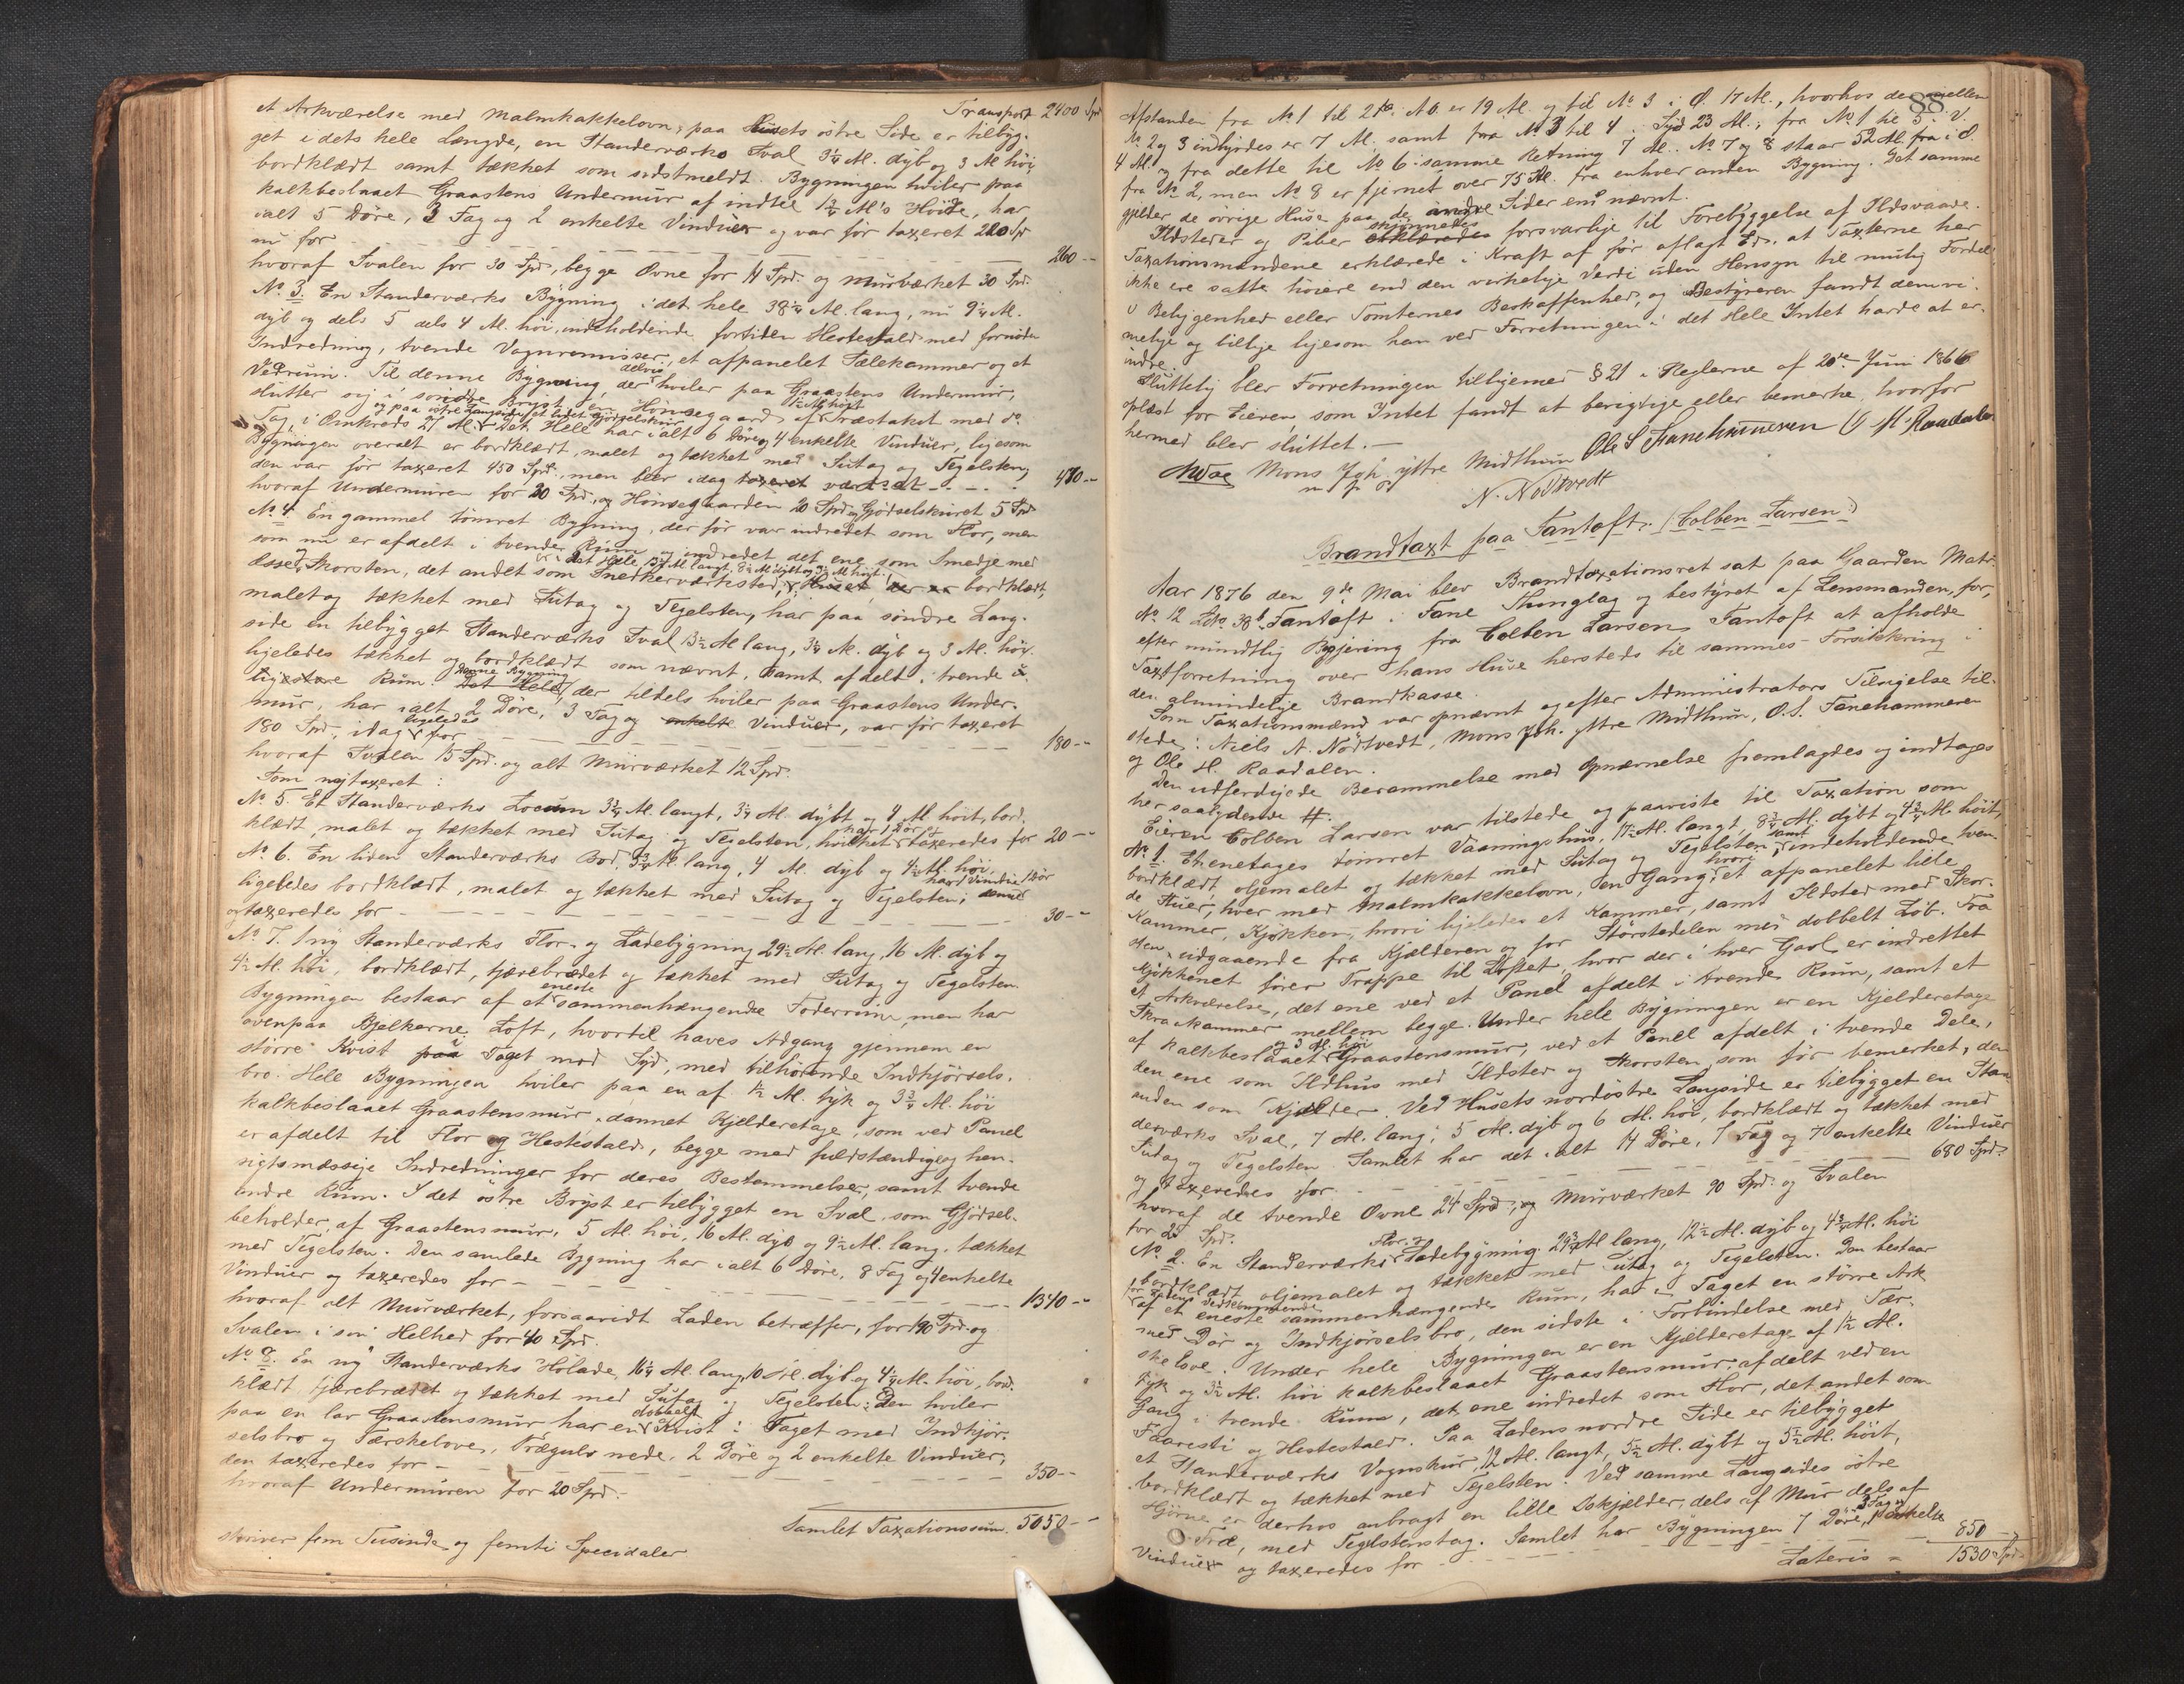 Transport 2400 Spd
et Arkværelse med Malmkakkelovn; paa Husets östre Side er tilbyg-
get i dets hele Længde, en Standerværks Sval 3 1/4 Al. dyb og 3 Al. höi,
bordklædt samt tækket som sidstmeldt. Bygningen hviler paa
kalkbeslaaet Graastens Undermur af indtil 1 3/4 Al's Höide, har
ialt 5 Döre, 3 Fag og 2 enkelte Vinduer og var för taxeret 220 Spd
nu for 260 --
hvoraf Svalen for 30 Spd, begge Ovne for 14 Spd. og murværket 30 Spd.
No 3. En Standerværks Bygning i det hele 38 1/4 Al. lang, nu 9 1/4 Al.
dyb og dels 5 dels 4 Al. höi, indeholdende fortiden Hestestald med fornöden
Indredning, tvende Vognremisser, et afpanelet Sælekammer og et
Vedrum. Til denne Bygning, der delvis hviler paa Graastens Undermur,
slutter sig i söndre Bryst en Hönsegaard af Træstaket med do
Tag, i Omkreds 27 Al. og paa östre Langside et lidet Gjödselskur. Det Hele har ialt 6 Döre og 4 enkelte Vinduer, ligesom
Bygningen overalt er bordklædt, malet og tækket med Sutag og Tegelsten,
den var för taxeret 450 Spd., men blev idag taxeret værdsat 480 --
hvoraf Undermuren for 20 Spd, og Hönsegaarden 20 Spd og Gjödselskuret 5 Spd
No 4. En gammel tömret Bygning, der för var indredet som Flor, men
som nu er afdelt i tvende Rum og indredet det ene som Smedje med
Esse og Skorsten, det andet som Snedkerværksted, Huset er bordklædt,
malet og tækket med Sutag og Tegelsten, har paa söndre Lang-
side en tilbygget Standerværks Sval 13 1/2 Al lang, 3 1/4 Al. dyb og 3 Al. höi
ligeledes tækket og bordklædt som nævnt, samt afdelt i trende
ligestore Rum. Det Hele Denne Bygning, der tildels hviler paa Graastens Under-
mur, har ialt 2 Döre, 3 Fag og enkelte Vinduer, var för taxeret
180 Spd, idag ligeledes for 180 --
hvoraf Svalen 15 Spd. og alt Murværket 12 Spd.
Som nytaxeret:
No 5. Et Standerværks Locum 3 3/4 Al. langt, 3 1/4 Al. dybt og 4 Al höit, bord-
klædt, malet og tækket med Sutag og Tegelsten, hvilket har 1 Dör, taxeredes for 20 --
No 6. En liden Standerværks Bod. 5 3/4 Al. lang, 4 Al. dyb og 4 1/2 Al. höi,
ligeledes bordklædt, malet og tækket med Sutag og Tegelsten; har 1 Vindu 1 Dör
og taxeredes for 30 --
No 7. 1 ny Standerværks Flor- og Ladebygning 29 1/2 Al. lang, 16 Al. dyb og
4 1/2 Al. höi, bordklædt, tjærebrædet og tækket med Sutag og Tegelsten
Bygningen bestaar af et eneste sammenhængende Foderrum, men har
ovenpaa Bjelkerne Loft, hvortil haves Adgang gjennem en
större Kvist paa Taget mod Syd, med tilhörende Indkjörsels-
bro. Hele Bygningen hviler paa en af 1 1/2 Al. tyk og 3 3/4 Al. höi
kalkbeslaaet Graastensmur, dannet Kjelderetage, som ved Panel
er afdelt til Flor og Hestestald, begge med fuldstændige og hen-
sigtsmæssige Indredninger for deres Bestemmelse, samt tvende
andre Rum. I det östre Bryst er tilbygget en Sval, som Gjödsel-
beholder, af Graastensmur, 5 Al. höi, 16 Al. dyb og 9 1/2 Al. lang, tækket
med Tegelsten. Den samlede Bygning har ialt 6 Döre, 8 Fag og 4 enkelte
Vinduer og taxeredes for 1340 --
hvoraf alt Murværket, forsaavidt Laden betræffer, for 190 Spd. og
Svalen i sin Helhed for 40 Spd.
No 8. En ny Standerværks Hölade, 16 1/4 Al. lang, 10 Al. dyb og 4 1/4 Al. höi, bord-
klædt tjærebrædet og tækket med Sutag og Tegelsten; Den hviler
paa en lav Graastensmur, har en dobbelt Kvist i Taget med Indkjör-
selsbro og Tærskelove, Trægulv nede, 2 Döre og 2 enkelte Vinduer,
den taxeredes for 350 --
hvoraf Undermuren for 20 Spd.
Samlet Taxationssum. 5050 --
skriver fem Tusinde og femti Speciedaler
88
Afstanden fra No 1 til 2 er 19 Al. og til No 3 i Ö. 17 Al., hvorhos der mellem
No 2 og 3 indbyrdes er 7 Al. samt fra No 3 til 4 i Syd 23 Al.; fra No 1 til 5 i V.
4 Al og fra dette til No 6 i samme Retning 7 Al. No 7 og 8 staar 52 Al. fra i Ö.
fra No 2, men No 8 er fjernet over 75 Al. fra enhver anden Bygning. Det samme
gjelder de övrige Huse paa de andre Sider end nævnt.
Ildsteder og Piber skjönnedes forsvarlige til Forebyggelse af Ildsvaade.
Taxationsmændene erklærede i Kraft af för aflagt Ed, at Taxterne her
ikke ere satte höiere end den virkelige Værdi uden Hensyn til mulig Fordel
v Beligenhed eller Tomternes Beskaffenhed, og Bestyreren fandt dem ri-
melige og billige ligesom han ved Forretningen i det Hele Intet havde at er-
indre.
Sluttelig blev Forretningen tilligemed § 21 i Reglerne af 20de Juni 1866
oplæst for Eieren, som Intet fandt at berigtige eller bemerke, hvorfor
hermed blev sluttet. —
Mons Joh. yttre Midthun Ole S Fanehammeren O H Raadalen
m p p
N. Nödtvedt
Brandtaxt paa Fantoft. (Colben Larsen)
Aar 1876 den 9de Mai blev Brandtaxationsret sat paa Gaarden Matr.
No 12 Lbn. 38b Fantoft i Fane Thinglag og bestyret af Lensmanden, for,
efter mundtlig Begjering fra Colben Larsen Fantoft at afholde
Taxtforretning over hans Huse hersteds til sammes Forsikkring i
den almindelige Brandkasse.
Som Taxationsmænd var opnævnt og efter Administrators Tilsigelse til-
stede: Niels A. Nödtvedt, Mons Joh. yttre Midthun, O. S. Fanehammeren
og Ole H. Raadalen.
Den udferdigede Berammelse med Opnævnelse fremlagdes og indtages
her saalydende #.
Eieren Colben Larsen var tilstede og paaviste til Taxation som
No 1. Et enetages tömret Vaaningshus, 17 1/2 Al. langt, 8 3/4 Al. dybt og 4 3/4 Al. höit,
bordklædt, oljemalet og tækket med Sutag og Tegelsten, samt indeholdende tven-
de Stuer, hver med Malmkakkelovn, en Gang, hvori et afpanelet lidet
Kammer, Kjökken, hvori ligeledes et Kammer, samt Ildsted med Skor-
sten, udgaaende fra Kjælderen og for Störstedelen med dobbelt Löb. Fra
Kjökkenet förer Trappe til Loftet, hvor der i hver Gavl er indrettet
et Arkværelse, det ene ved et Panel afdelt i tvende Rum, samt et
Skraakammer mellem begge. Under hele Bygningen er en Kjelderetage
af kalkbeslaaet og 3 Al. höi Graastensmur, ved et Panel afdelt i tvende Dele,
den ene som Ildhus med Ildsted og Skorsten, som för bemerket, den
anden som Kjælder. Ved Husets nordöstre Langside er tilbygget en Stan-
derværks Sval, 7 Al. lang, 5 Al. dyb og 6 Al. höi, bordklædt og tækket med
Sutag og Tegelsten. Samlet har det ialt 14 Döre, 7 Fag og 7 enkelte Vinduer
og taxeredes for 680 Spd.
hvoraf de tvende Ovne 24 Spd., og Murværket 90 Spd. og Svalen
for 25 Spd.
No 2. En Standerværks Flor- og Ladebygning 29 3/4 Al lang, 12 1/2 Al. dyb og 4 3/4 Al. höi
bordklædt oljemalet og tækket med Sutag og Tegelsten. Den bestaar
for Ladens Vedkommende af et eneste sammenhængende Rum, har i Taget en större Ark
med Dör og Indkjörselsbro, den sidste i Forbindelse med Tær-
skelove. Under hele Bygningen er en Kjelderetage af 1 1/2 Al.
tyk og 3 1/2 Al. höi kalkbeslaaet Graastensmur, afdelt ved en
Gang i tvende Rum, det ene indredet som Flor, det andet som
Faaresti og Hestestald. Paa Ladens nordre Side er tilbygget
et Standerværks Vognskur, 12 Al. langt, 5 1/2 Al. dybt og 5 1/2 Al. höit,
bordklædt og tækket med Tegelsten. Ved samme Langsides östre
Hjörne er derhos anbragt en lille Iskjælder, dels af Mur dels af
Træ, med Tegelstenstag. Samlet har Bygningen 7 Döre, 3 Fag og enkelte
Vinduer og taxeredes for 850 --
Lateris 1530 Spd.